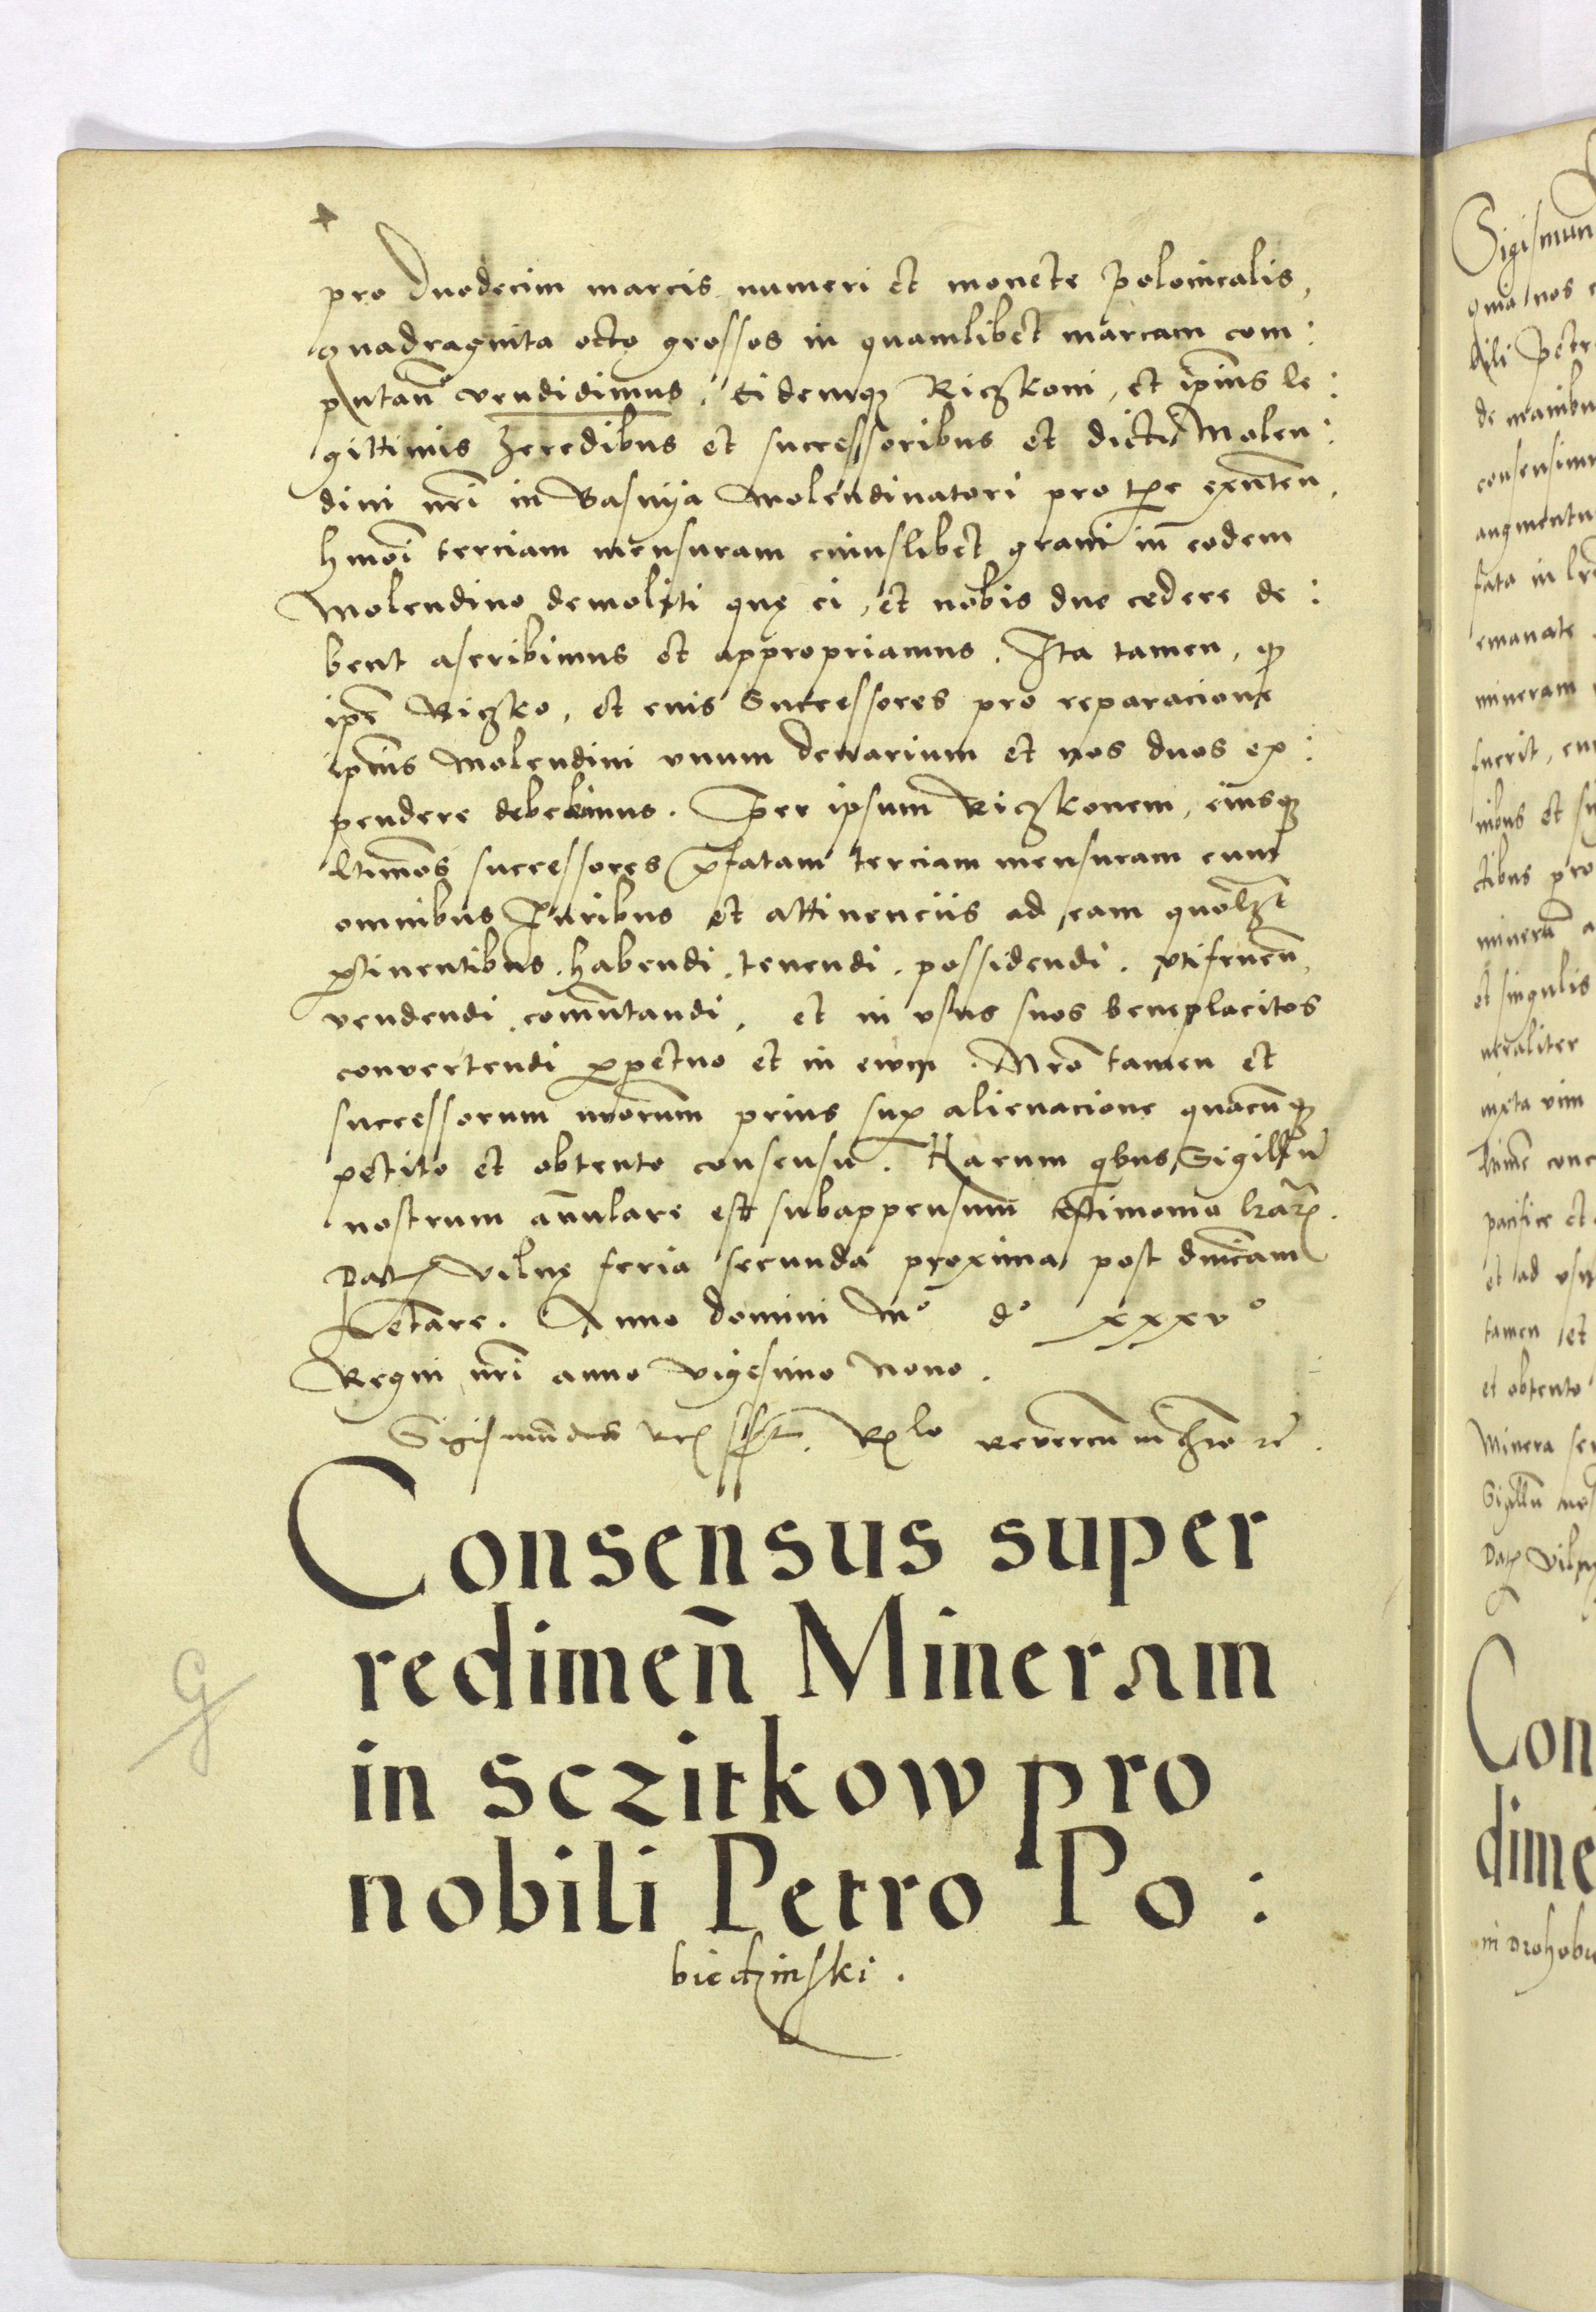 pro duodecim marcis numeri et monete polonicalis,
quadraginta octo grossos in quamlibet marcam com:
putan̄ vendidimus. Eidemq3 Riczkoni, et ip̄ius le:
gittimis heredibus et successoribus et dicti Molen:
dini nr̄i in Basnija molendinatori pro tp̄e exn̄ten̄,
hmōi terciam mensuram cuiuslibet grani in eodem
Molendino demoliti quę ei, et nobis due cedere de:
bent ascribimus et appropriamus. Ita tamen, q
ip̄e Riczko, et eius Successores pro reparacione
ip̄ius molendini vnum denarium et nos duos ex:
pendere debebimus. Per ipsum Riczkonem, eiusq3
l̄timos successores p̄fatam terciam mensuram cum
omnibus Iuribus et attinenciis ad eam quolz̄t
p̄tinentibus, habendi, tenendi, possidendi, vtifruen̄,
vendendi, com̄utandi, et in vsus suos beneplacitos
convertendi p̄petuo et in ewm. Nr̄o tamen et
successorum nr̄orum prius sup̄ alienacione quacun̄q3
petito et obtento consensu. Harum qbus Sigillū
nostrum an̄ulare est subappensum testimonio lr̄ar.
Dat Vilnę feria secunda proxima post dn̄icam
Letare. Anno domini Mº dº xxxvº
Regni nr̄i anno vigesimo nono.
Sigismūdus Rex sst. Rlo reveren in chr̄o re.
Consensus super
redimen̄ Mineram
in sczitkow pro
nobili Petro Po:
biedzinski.
G
Sigismun
quia nos
bili Petr
de manibu
consensim
augmentu
fata in lr̄
emanate
mineram
fuerit, cu
nibus et su
ctibus pro
minerā a
et singulis
neraliter
iuxta vim
conc
pacifice et
et ad vsu
tamen et
et obtento
Minera se
Sigillū nos
Dat Viln
Con
dime
in Drohobi